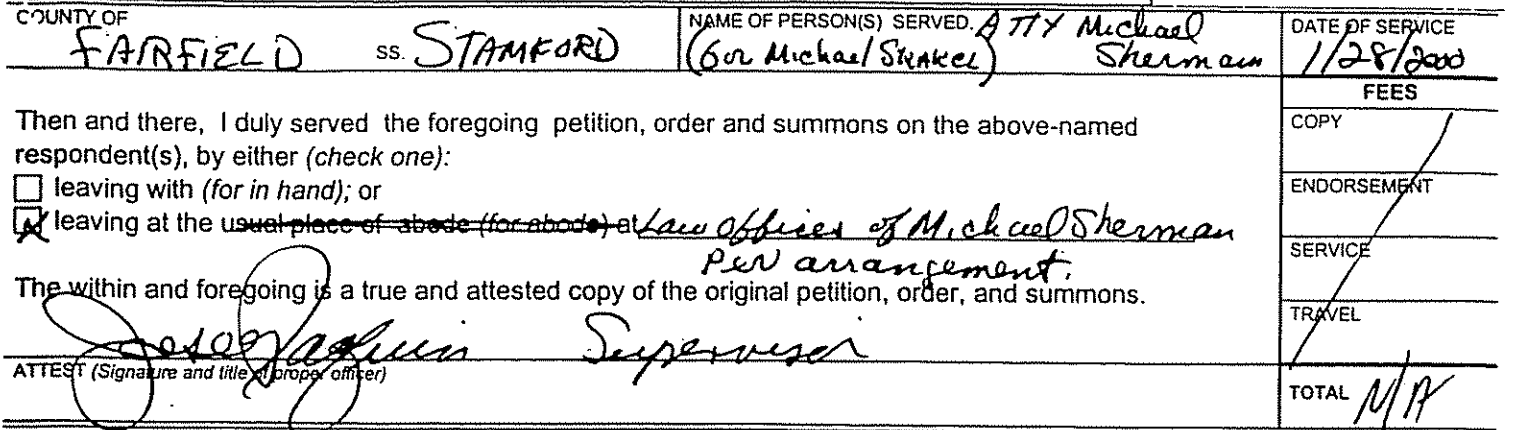 COUNTY OF FAIRFIELD ss. STAMFORD
NAME OF PERSON(S) SERVED. ATTY Michael Sherman
(for Michael Skakel)
DATE OF SERVICE
1/28/2000
FEES
Then and there, I duly served the foregoing petition, order and summons on the above-named
respondent(s), by either (check one):
leaving with (for in hand); or
leaving at the usual place of abode (for abode) at Law Offices of Michael Sherman
per arrangement.
The within and foregoing is a true and attested copy of the original petition, order, and summons.
Supervisor
ATTEST (Signature and title of proper officer)
COPY
ENDORSEMENT
SERVICE
TRAVEL
TOTAL N/A